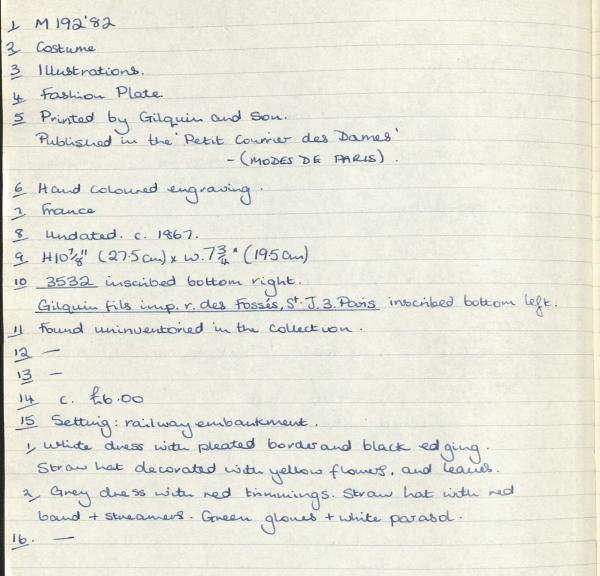 1 M 192'82
2 Costume
3 Illustrations.
4 Fashion Plate.
5 Printed by Gilquin and Son.
Published in the 'Petit Courrier des Dames'
- (MODES DE PARIS).
6 Hand coloured engraving.
7 France
8 Undated. c. 1867.
9 H10 7/8" (27.5cm) x w. 7 3/4" (19.5cm)
10 3532 inscribed bottom right.
Gilquin fils imp. r. des Fossés, St. J. 3. Paris inscribed bottom left.
11 Found uninventoried in the collection.
12 —
13 —
14 c. £6.00
15 Setting: railway embankment.
1, White dress with pleated border and black edging.
Straw hat decorated with yellow flowers, and leaves.
2, Grey dress with red trimmings. Straw hat with red
band + streamers. Green gloves + white parasol.
16. —